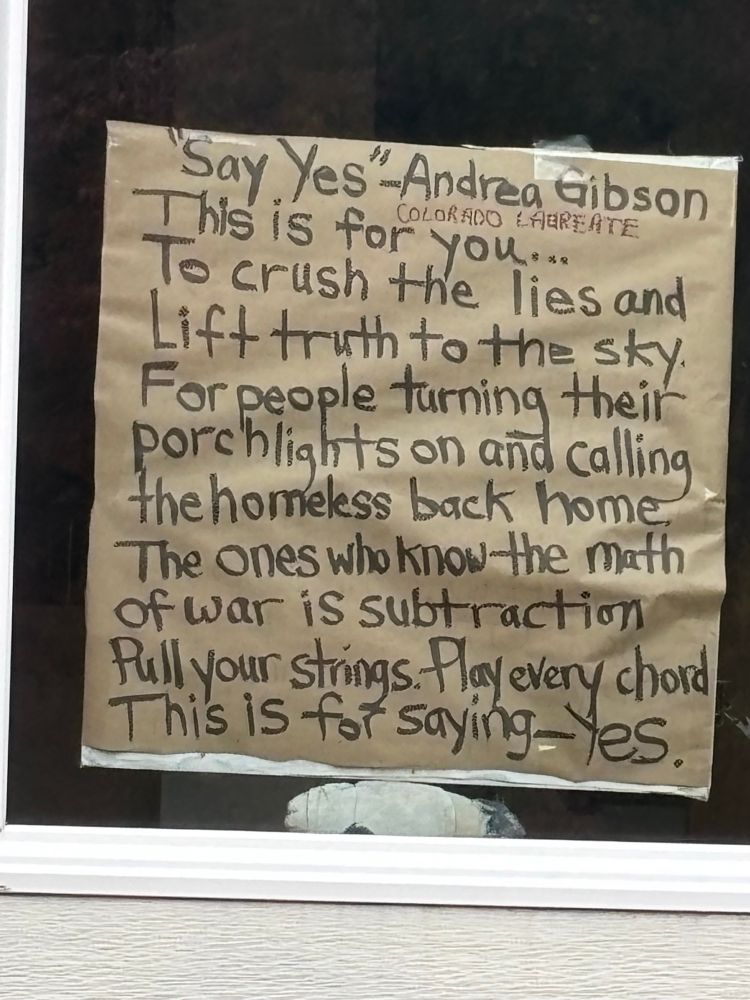 "Say Yes"-Andrea Gibson
COLORADO LAUREATE
This is for you...
To crush the lies and
Lift truth to the sky.
For people turning their
porchlights on and calling
the homeless back home
The ones who know the math
of war is subtraction
Pull your strings. Play every chord
This is for saying-Yes.